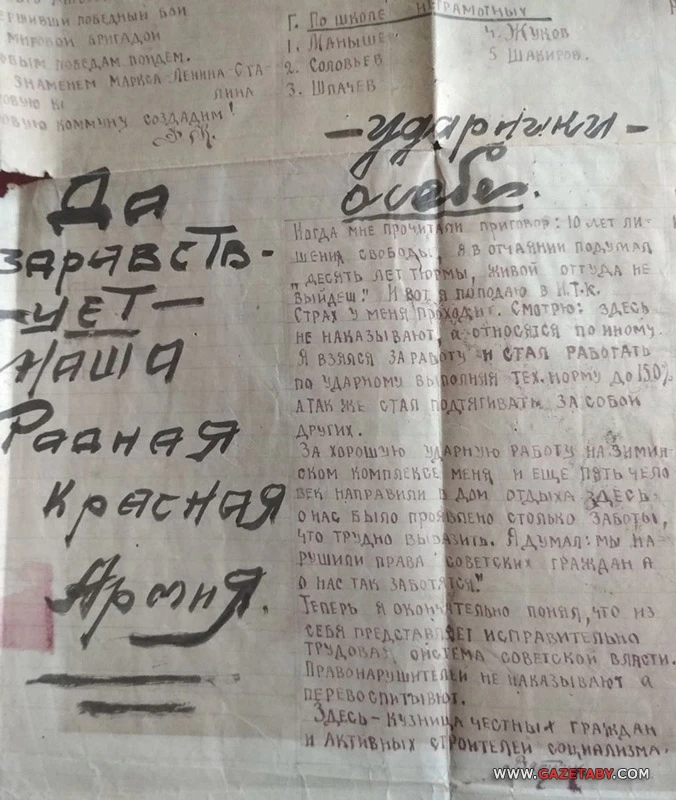 ершивши победный бай
мировой бригадой
овым победам пойдем.
знаменем Маркса Ленина-Ста-
лина
овую коммуну создадим!
Г. По школе неграмотных
1. Маныше
2. Соловьев
3. Шпачев
4. Жуков
5 Шакиров.
Да
здравств-
-ует-
наша
Радная
красная
Армия.
-ударники-
о себе.
Когда мне прочитали приговор: 10 лет ли-
шения свободы, я в отчаянии подумал
„десять лет тюрмы, живой оттуда не
выйдеш." И вот я поподаю в И.Т.К.
Страх у меня проходит. Смотрю: здесь
не наказывают, а относятся по иному.
Я взялся за работу и стал работать
по ударному выполняя тех. норму до 150%
а так же стал подтягивать за собой
других.
За хорошую ударную работу на зимин-
ском комплексе меня и еще пять чело
век направили в дом отдыха здесь
о нас было проявлено столько заботы,
что трудно выразить. Я думал: мы на-
рушили права советских граждан а
о нас так заботятся."
Теперь я окончательно понял, что из
себя представляет исправительно
трудовая система советской власти.
Правонарушителей не наказывают а
перевоспитывют.
Здесь - кузница честных граждан
и активных строителей социализма.
WWW.GAZETABY.COM